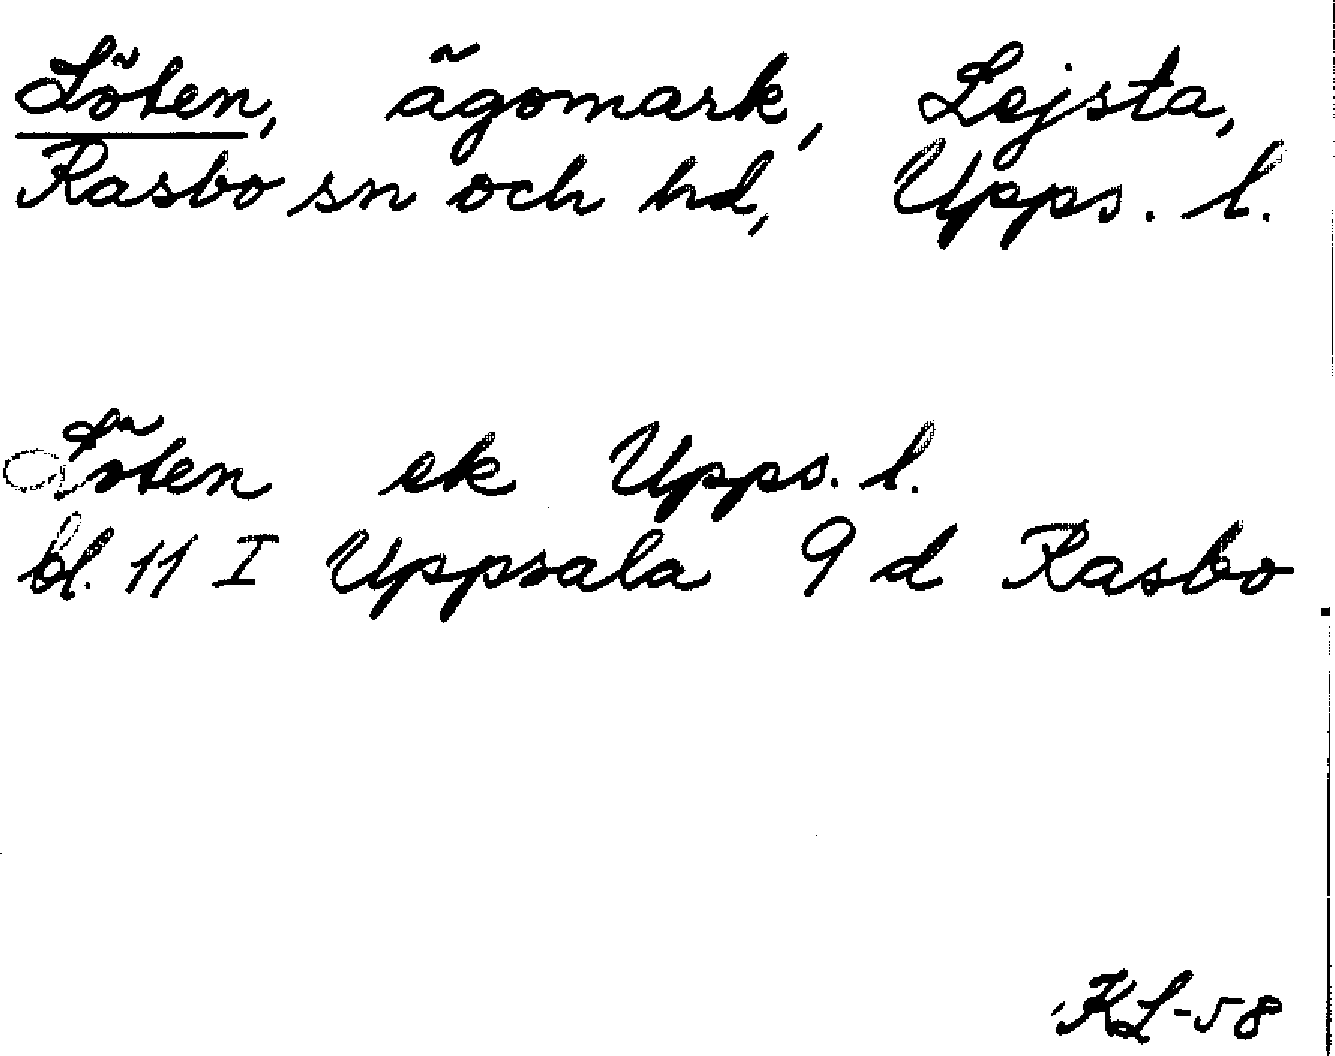 Löten, ägomark, Lejsta,
Rasbo sn och hd, Upps. l.
Löten ek Upps. l.
bl. 11 I Uppsala 9 d Rasbo
KL-58